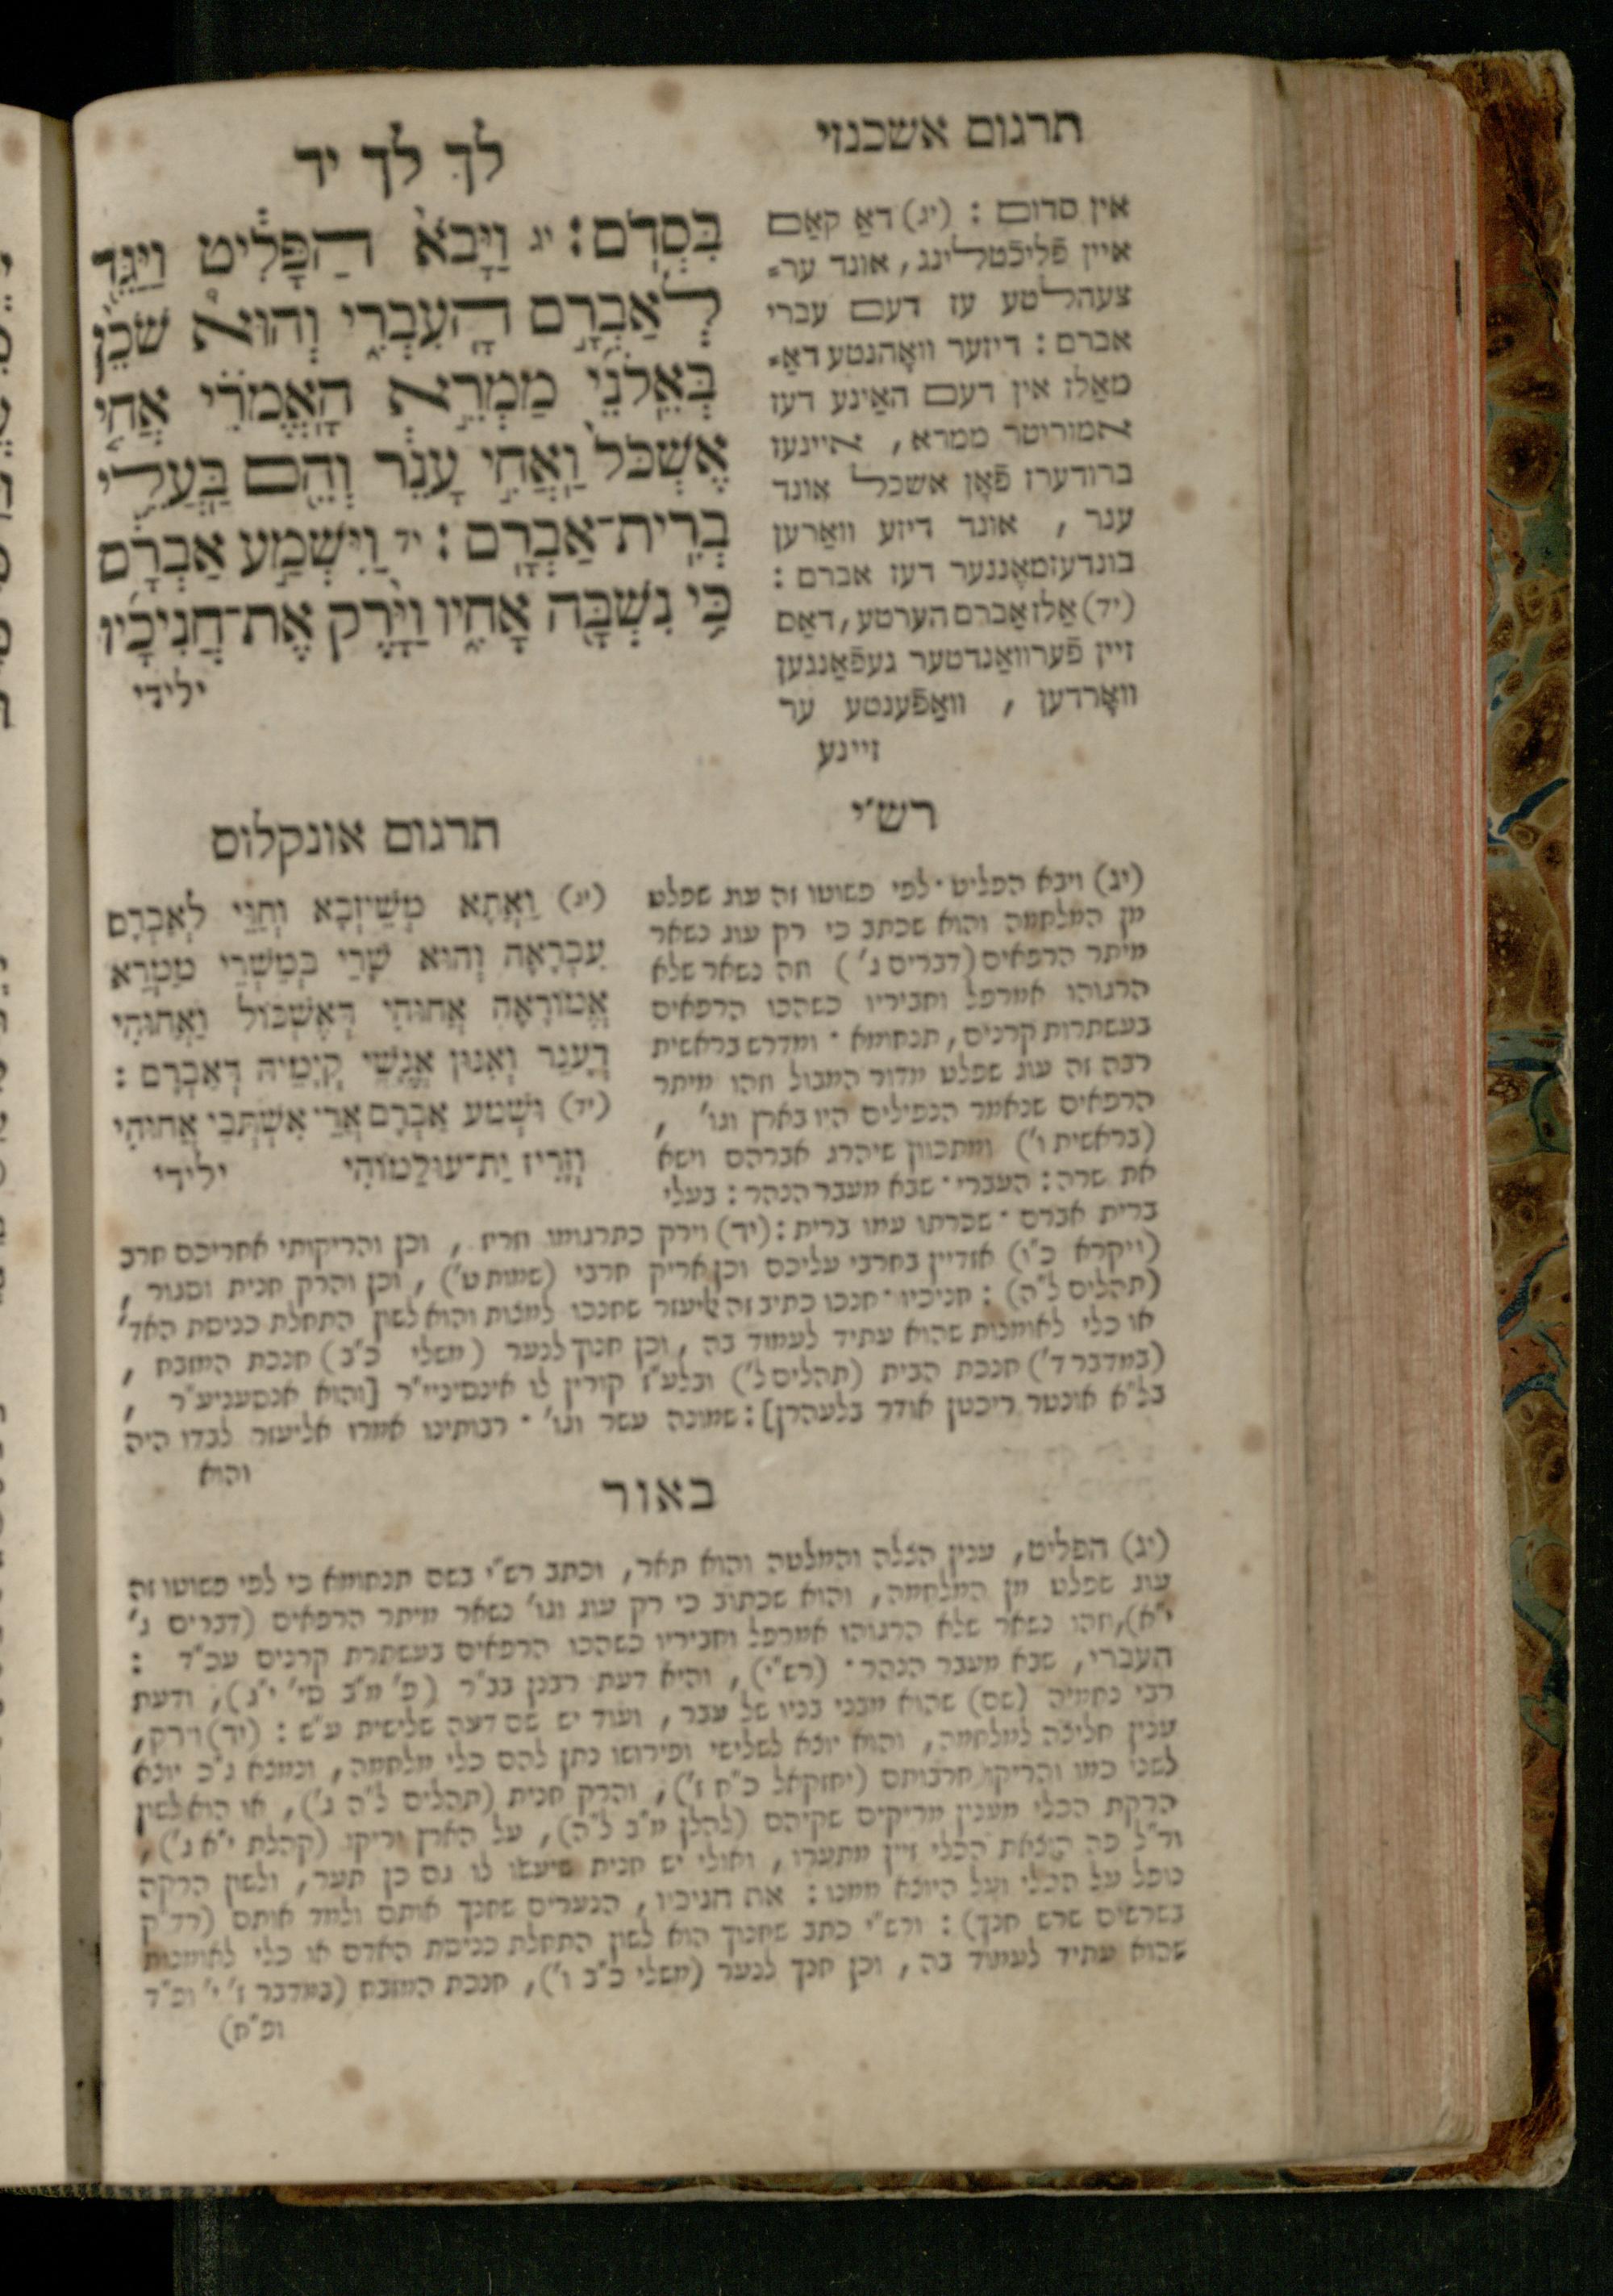 תרגום אשכנזי
לך לך יד
בִּסְדֹֽם׃ יג וַיָּבֹא֙ הַפָּלִ֔יט וַיַּגֵּ֖ד
לְאַבְרָ֣ם הָעִבְרִ֑י וְהוּא֩ שֹׁכֵ֨ן
בְּאֵֽלֹנֵ֜י מַמְרֵ֣א הָאֱמֹרִ֗י אֲחִ֤י
אֶשְׁכֹּל֙ וַאֲחִ֣י עָנֵ֔ר וְהֵ֖ם בַּעֲלֵ֥י
בְרִית־אַבְרָֽם׃ יד וַיִּשְׁמַ֣ע אַבְרָ֔ם
כִּ֥י נִשְׁבָּ֖ה אָחִ֑יו וַיָּ֨רֶק אֶת־חֲנִיכָ֜יו
ילידי
אין סדום : (יג) דאַ קאַם
איין פֿליכֿטלינג, אונד ער־
צעהלטע עז דעם עברי
אברם : דיזער וואָהנטע דאַ־
מאַלז אין דעם האַינע דעז
אמוריטר ממרא, איינעז
ברודערז פֿאָן אשכל אונד
ענר, אונד דיזע וואַרען
בונדעזגאָננער דעז אברם :
(יד) אַלז אַברם הערטע, דאַס
זיין פֿערוואַנדטער געפֿאַנגען
וואָרדען, וואַפֿענטע ער
זיינע
רש״י
(יג) ויבא הפליט ־ לפי פשוטו זה עוג שפלט
מן המלחמה והוא שכתב כי רק עוג נשאר
מיתר הרפאים (דברים ג׳) וזה נשאר שלא
הרגוהו אמרפל וחביריו כשהכו הרפאים
בעשתרות קרנים, תנחומא ־ ומדרש בראשית
רבה זה עוג שפלט מדור המבול וזהו מיתר
הרפאים שנאמר הנפילים היו בארץ וגו׳,
(בראשית ו׳) ומתכוון שיהרג אברהם וישא
את שרה : העברי ־ שבא מעבר הנהר : בעלי
ברית אברם ־ שכרתו עמו ברית : (יד) וירק כתרגומו וזריז, וכן והריקותי אחריכם חרב
(וייקרא כ״ו) אזדיין בחרבי עליכם וכן אריק חרבי (שמות ט׳), וכן והרק חנית וסגור,
(תהלים ל״ה) : חניכיו ־ חנכו כתיב זה אליעזר שחנכו למצות והוא לשון התחלת כניסת האד׳
או כלי לאומנות שהוא עתיד לעמוד בה, וכן חנוך לנער (משלי כ״ב) חנכת המזבח,
(במדבר ד׳) חנכת הבית (תהלים ל׳) ובלע״ז קורין לו אינסינייי״ר [והוא אנסעניע״ר,
בל״א אונטר ריכטן אודר בלעהרן] : שמונה עשר וגו׳ ־ רבותינו אמרו אליעזר לבדו היה
והוא
תרגום אונקלוס
(יג) וַאֲתָא מְשֵׁיזְבָא וְחַוִּי לְאַבְרָם
עִבְרָאָה וְהוּא שָׁרֵי בְּמֵשְׁרֵי מַמְרֵא
אֱמוֹרָאָה אֲחוּהִי דְּאֶשְׁכּוֹל וַאֲחוּהִי
דְּעָנֵר וְאִנּוּן אֱנָשֵׁי קְיָמֵיהּ דְּאַבְרָם :
(יד) וּשְׁמַע אַבְרָם אֲרֵי אִשְׁתְּבִי אֲחוּהִי
וְזָרֵיז יַת־עוּלֵמוֹהִי ילידי
באור
(יג) הפליט, ענין הצלה והמלטה והוא תאר, וכתב רש״י בשם תנחומא כי לפי פשוטו זה
עוג שפלט מן המלחמה, והוא שכתוב כי רק עוג וגו׳ נשאר מיתר הרפאים (דברים ג׳
י״א), וזהו נשאר שלא הרגוהו אמרפל וחביריו כשהכו הרפאים בעשתרת קרנים עכ״ד :
העברי, שבא מעבר הנהר ־ (רש״י), והיא דעת רבנן בב״ר (פ׳ מ״ב סי׳ י״ג), ודעת
רבי נחמיה (שם) שהוא מבני בניו של עבר, ועוד יש שם דעה שלישית ע״ש : (יד) וירק,
ענין חליצה למלחמה, והוא יוצא לשלישי ופירושו נתן להם כלי מלחמה, ונמצא ג״כ יוצא
לשני כמו והריקו חרבותם (יחזקאל כ״ח ז׳), והרק חנית (תהלים ל״ה ג׳), או הוא לשון
הרקת הכלי מענין מריקים שקיהם (להלן מ״ב ל״ה), על הארץ יריקו (קהלת י״א ג׳),
ור״ל פה הוצאת הכלי זיין מתערו, ואולי יש חנית שיעשו לו גם כן תער, ולשון הרקה
נופל על הכלי ועל היוצא ממנו : את חניכיו, הנערים שחנך אותם ולמד אותם (רד״ק
בשרשים שרש חנך) : ורש״י כתב שחנוך הוא לשון התחלת כניסת האדם או כלי לאומנות
שהוא עתיד לעמוד בה, וכן חנך לנער (משלי כ״ב ו׳), חנכת המזבח (במדבר ז׳ י׳ ופ״ד
ופ״ח)